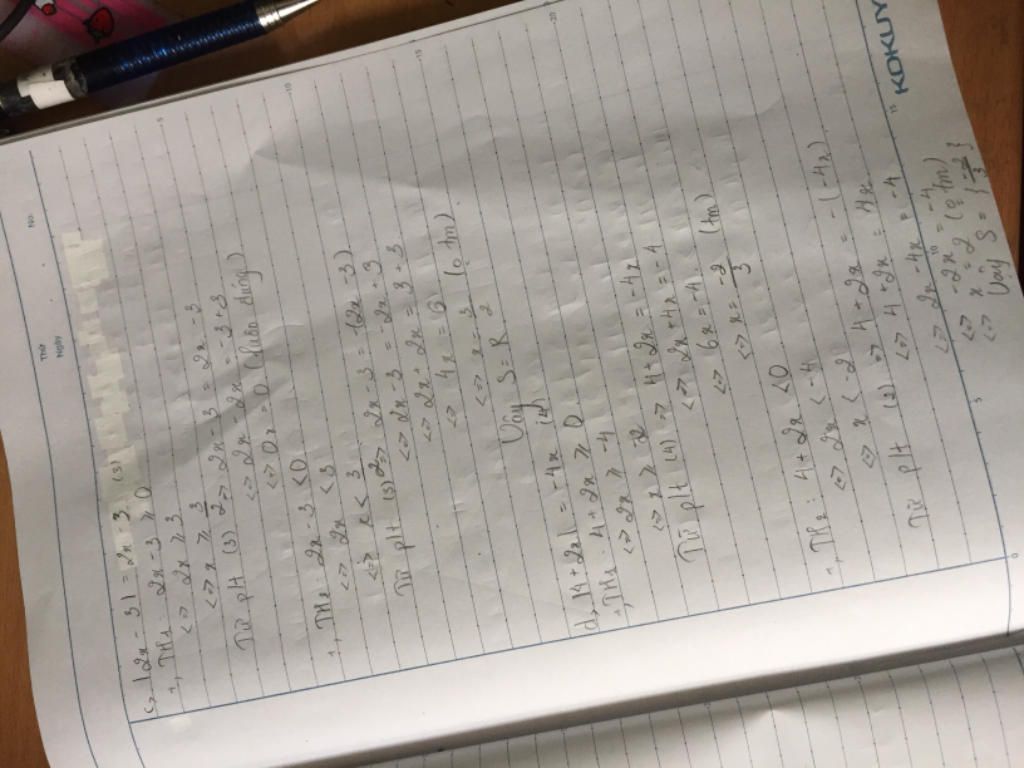 Thứ
Ngày
No.
c, |2x - 3| = 2x - 3 (3)
+, TH1: 2x - 3 ≥ 0
<=> 2x ≥ 3
<=> x ≥ 3/2
Từ pt (3) => 2x - 3 = 2x - 3
<=> 2x - 2x = -3 + 3
<=> 0x = 0 (luôn đúng)
+, TH2: 2x - 3 < 0
<=> 2x < 3
<=> x < 3/2
Từ pt (3) => 2x - 3 = -(2x - 3)
<=> 2x - 3 = -2x + 3
<=> 2x + 2x = 3 + 3
<=> 4x = 6
<=> x = 3/2 (o tm)
Vậy S = R
d, |4 + 2x| = -4x (4)
+, TH1: 4 + 2x ≥ 0
<=> 2x ≥ -4
<=> x ≥ -2
Từ pt (4) => 4 + 2x = -4x
<=> 2x + 4x = -4
<=> 6x = -4
<=> x = -2/3 (tm)
+, TH2: 4 + 2x < 0
<=> 2x < -4
<=> x < -2
Từ pt (2) => 4 + 2x = -(-4x)
<=> 4 + 2x = 4x
<=> 2x - 4x = -4
<=> -2x = -4
<=> x = 2 (o tm)
<=> Vậy S = {-2/3}
KOKUY